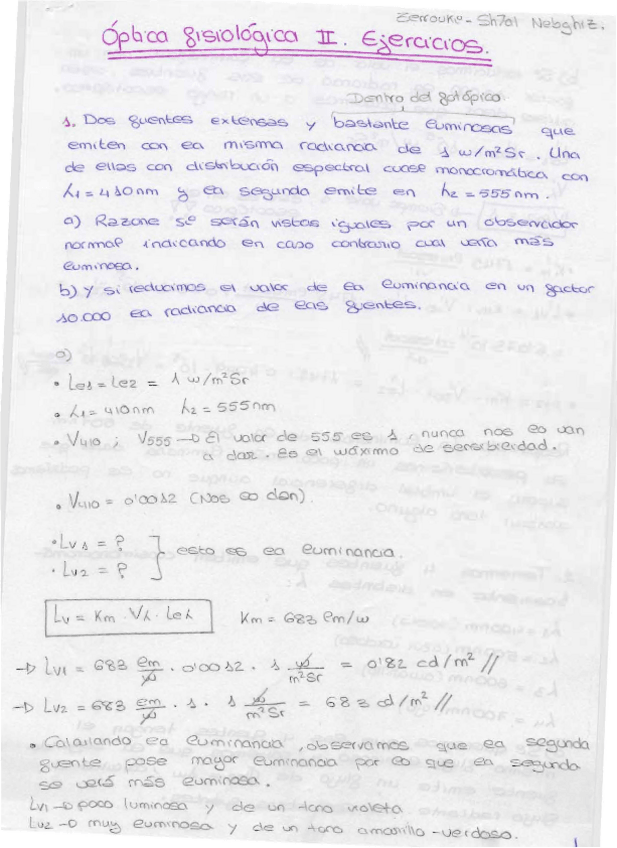 Zerrouki-Sh7al Nebghiz.
Óptica fisiológica II. Ejercicios.
Dentro del fotópico
1. Dos fuentes extensas y bastante luminosas que
emiten con la misma radiancia de 1 w/m²Sr. Una
de ellas con distribución espectral cuasi monocromática con
λ1=410nm y la segunda emite en λ2=555nm.
a) Razone si serán vistas iguales por un observador
normal indicando en caso contrario cual vería más
luminosa.
b) Y si reducimos el valor de la luminancia en un factor
10.000 la radiancia de las fuentes.
a)
• Le1=Le2 = 1 w/m²Sr
• λ1=410nm λ2=555nm
• V410 ; V555 → El valor de 555 es 1, nunca nos lo van
a dar. Es el máximo de sensibilidad.
• V410 = 0'0012 (Nos lo dan).
• Lv1 = ?
• Lv2 = ? } esto es la luminancia.
Lv = Km · Vλ · Leλ Km = 683 lm/w
→ Lv1 = 683 lm/w · 0'0012 · 1 w/m²Sr = 0'82 cd/m² //
→ Lv2 = 683 lm/w · 1 · 1 w/m²Sr = 683 cd/m² //
• Calculando la luminancia, observamos que la segunda
fuente pose mayor luminancia por lo que la segunda
se verá más luminosa.
Lv1 → poco luminosa y de un tono violeta.
Lv2 → muy luminosa y de un tono amarillo-verdoso.
1